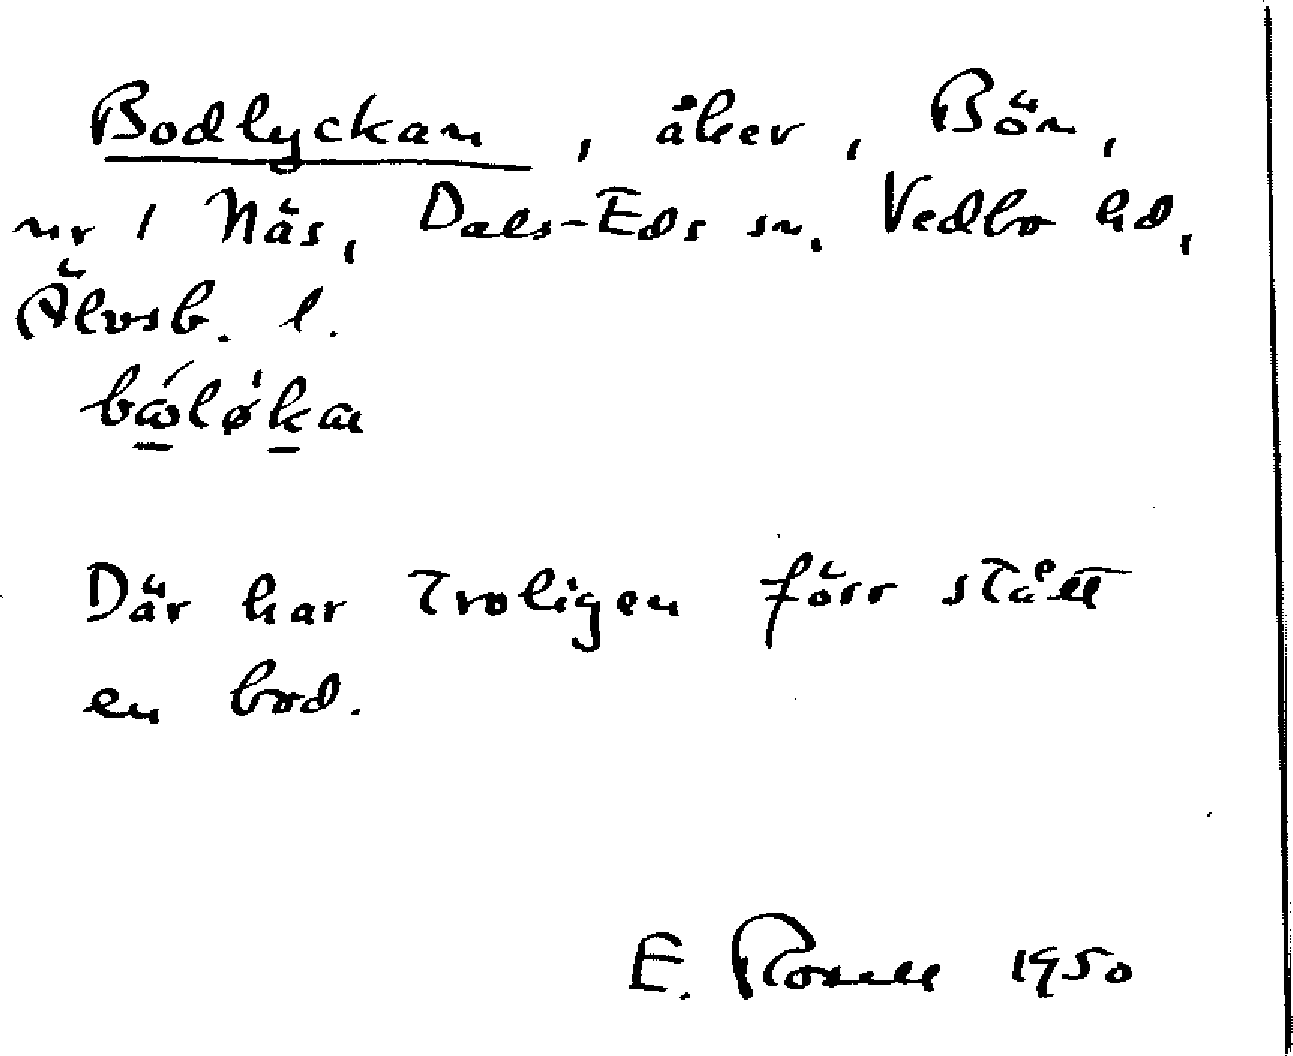 Bodlyckan, åker, Bön,
nr 1 Näs, Dals-Eds sn, Vedbo hd,
Älvsb. l.
Där har troligen förr stått
en bod.
E. Rosell 1950